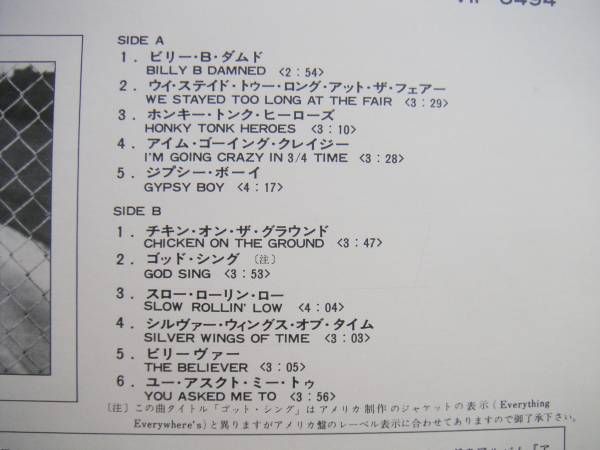 SIDE A
1. ビリー・B・ダムド
BILLY B DAMNED <2:54>
2. ウイ・ステイド・トゥー・ロング・アット・ザ・フェアー
WE STAYED TOO LONG AT THE FAIR <3:29>
3. ホンキー・トンク・ヒーローズ
HONKY TONK HEROES <3:10>
4. アイム・ゴーイング・クレイジー
I'M GOING CRAZY IN 3/4 TIME <3:28>
5. ジプシー・ボーイ
GYPSY BOY <4:17>
SIDE B
1. チキン・オン・ザ・グラウンド
CHICKEN ON THE GROUND <3:47>
2. ゴッド・シング 〔注〕
GOD SING <3:53>
3. スロー・ローリン・ロー
SLOW ROLLIN' LOW <4:04>
4. シルヴァー・ウィングス・オブ・タイム
SILVER WINGS OF TIME <3:03>
5. ビリーヴァー
THE BELIEVER <3:05>
6. ユー・アスクト・ミー・トゥ
YOU ASKED ME TO <3:56>
〔注〕この曲タイトル「ゴット・シング」はアメリカ制作のジャケットの表示(Everything
Everywhere's)と異りますがアメリカ盤のレーベル表示に合わせてありますので御了承下さい。